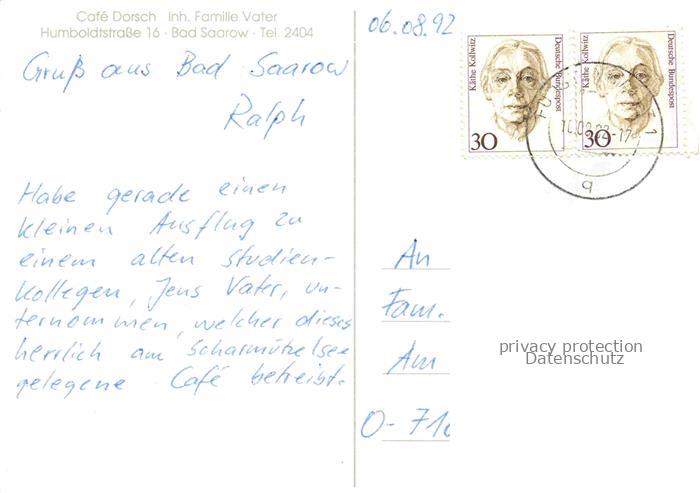 Café Dorsch Inh. Familie Vater
Humboldtstraße 16 · Bad Saarow · Tel. 2404
Gruß aus Bad Saarow
Ralph
Habe gerade einen
kleinen Ausflug zu
einem alten Studien-
kollegen, Jens Vater, un-
ternommen, welcher dieses
herrlich am Scharmützelsee
gelegene Café betreibt.
06.08.92
Käthe Kollwitz
Deutsche Bundespost
30
Käthe Kollwitz
Deutsche Bundespost
30
q
An
Fam.
Am
O-710
privacy protection
Datenschutz